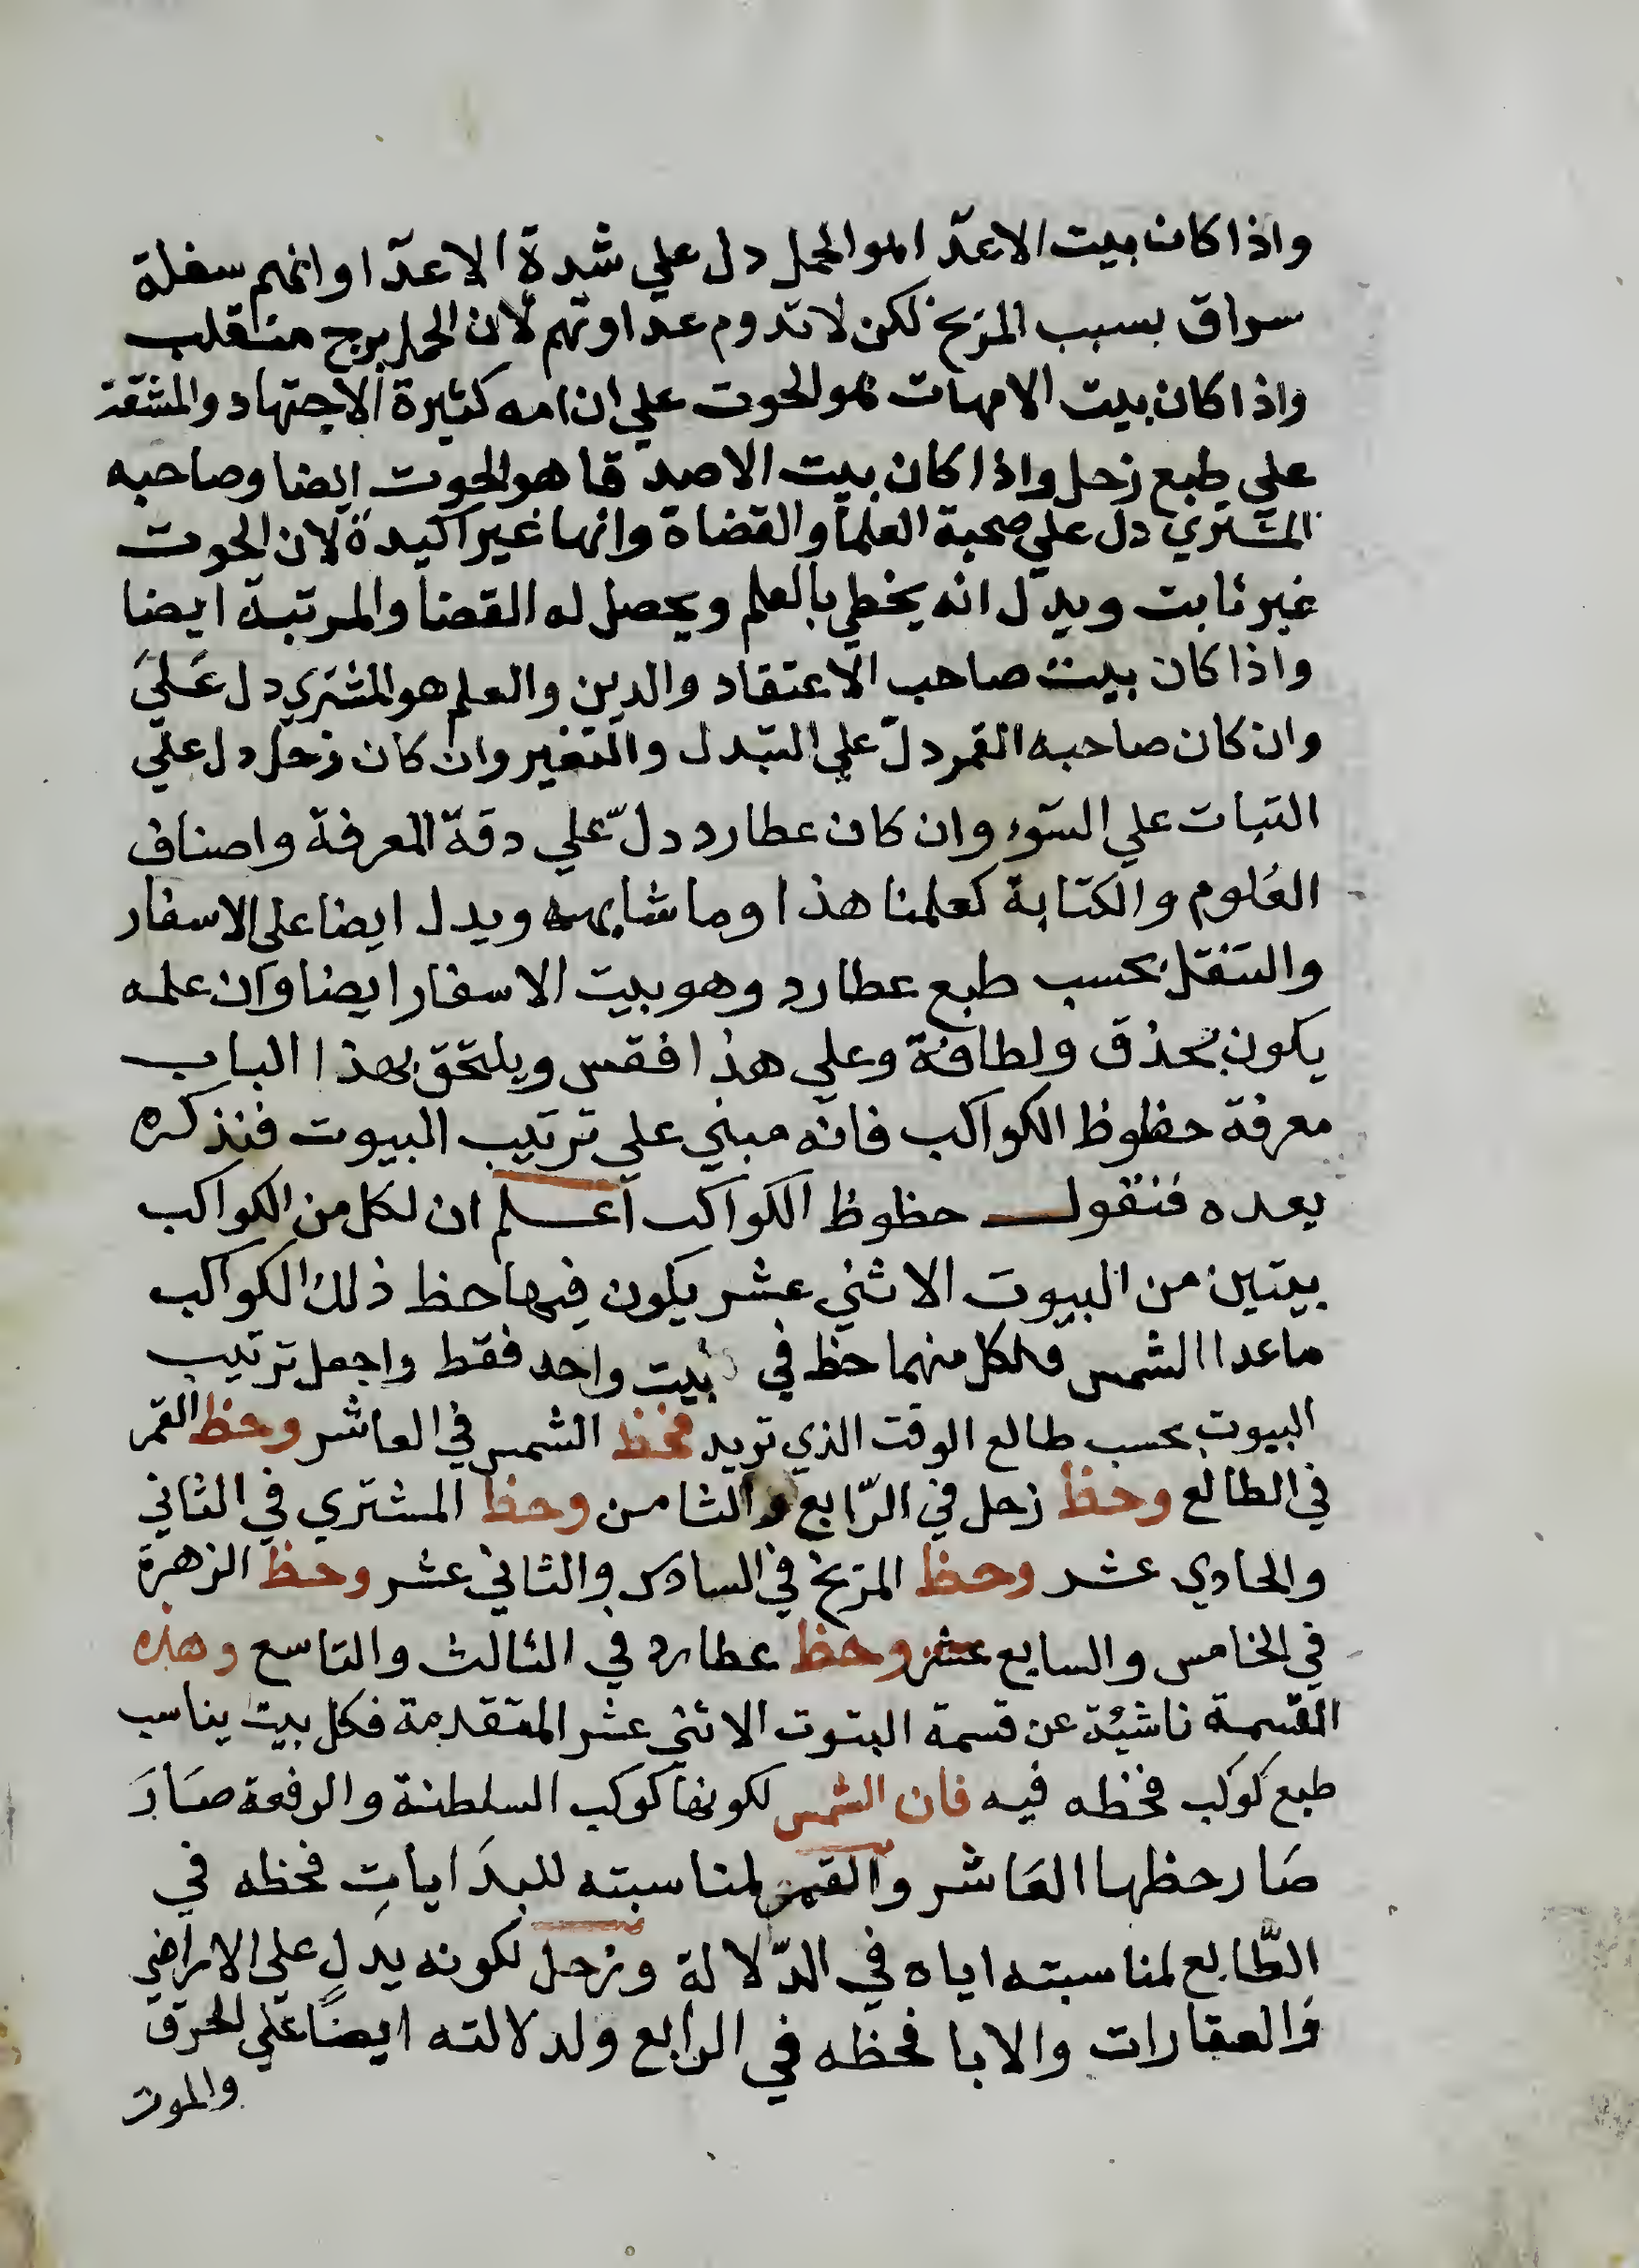 واذا كان بيت الاعدّا هو الحمل دل علي شدة الاعدّا وانهم سفلة
سراق بسبب المريخ لكن لا تدوم عداوتهم لان الحمل برج منقلب
واذا كان بيت الامهات هو الحوت علي ان امه كثيرة الاجتهاد والمشقة
علي طبع زحل واذا كان بيت الاصدقا هو الحوت ايضا وصاحبه
المشتري دل علي صحبة العلما والقضاة وانها غير اكيدة لان الحوت
غير ثابت ويدل انه يخطي بالعلم ويحصل له القضا والمرتبة ايضا
واذا كان بيت صاحب الاعتقاد والدين والعلم هو المشتري دل عَليَ
وان كان صاحبه القمر دلّ علي التبدل والتغير وان كان زحل دل علي
التبات علي السّوء وان كان عطارد دلّ علي دقة المعرفة واصناف
العُلوم والكتابة كعلمنا هذا وما شابهه ويدل ايضا علي الاسفار
والتنقل بحسب طبع عطارد وهو بيت الاسفار ايضا وان علمه
يكون بحذق ولطافة وعلي هذا فقس ويلتحق بهذا الباب
معرفة حظوظ الكواكب فانه مبني علي ترتيب البيوت فنذكره
بعده فنقول حظوظ الكواكب اعلم ان لكل من الكواكب
بيتين من البيوت الاثني عشر يكون فيها حظ ذلك الكواكب
ماعدا الشمس فلكل منهما حظ في بيت واحد فقط واجعل ترتيب
البيوت بحسب طالع الوقت الذي تريد فحظ الشمس في العاشر وحظ القمر
في الطالع وحظ زحل في الرّابع والثامن وحظ المشتري في الثاني
والحادي عشر وحظ المريخ في السادس والثاني عشر وحظ الزهرة
في الخامس والسابع عشر وحظ عطارد في الثالث والتاسع وهذه
القسمة ناشئة عن قسمة البتوت الاثني عشر المتقدمة فكل بيت يناسب
طبع كوكب فحظه فيه فان الشمس لكونها كوكب السلطنة والرفعة صَارَ
صَار حظها العَاشر والقمر لمناسبته للبدَايات فحظه في
الطّالع لمناسبته اياه في الدّلالة وزحل لكونه يدل علي الاراضي
والعقارات والابا فحظه في الرابع ولدلالته ايضًا علي الحرق
والموت